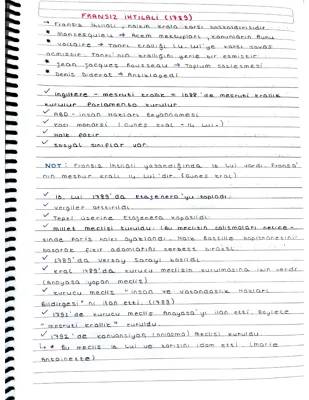 FRANSIZ IHTILALI (1789)
* Fransız Ihtilali, halkın krala karşı başkaldırısıdır.
* Montesquieu → Acem mektupları, kanunların Ruhu
* Voltaire → Tanrı Krallığı 14. Lui'ye karşı savaş
açmıştır. Tanrı'nın krallığını yerle bir etmiştir
* Jean Jacques Rousseau → Toplum sözleşmesi
* Denis Diderot → Ansiklopedi
✓ İngiltere - meşruti krallık = 1688' de meşruti krallık
kurulur. Parlamento kurulur
✓ ABD - insan Hakları Beyannamesi
✓ Katı monarşi (Güneş kral - 14. Lui)
✓ Halk fakir
✓ Sosyal sınıflar var
NOT: Fransız Ihtilali yaşandığında 16. Lui vardı. Fransa'
nın meşhur kralı 14. Lui'dir. (Güneş kral)
✓ 16. Lui 1789'da Etajenera'yu topladı.
✓ Vergiler arttırıldı.
✓ Tepki üzerine Etajenera kapatıldı.
✓ Millet meclisi kuruldu. Bu meclisin çalışmaları
sinde Paris halkı ayaklandı. Halk Bastille hapishanesini
basarak fikir adamlarını serbest bıraktı.
✓ 1789'da Versay Sarayı basıldı
✓ Kral 1789'da kurucu meclisin kurulmasına izin verdi
(Anayasa yapan meclis)
✓ Kurucu meclis "İnsan ve Vatandaşlık Hakları
Bildirgesi" ni ilan etti. (1789)
✓ 1791'de kurucu meclis Anayasa'yı ilan etti. Böylece
"meşruti krallık" kuruldu.
✓ 1792'de konvansiyon (anlaşma) Meclisi kuruldu.
↳ * Bu meclis 16. Lui ve karısını idam etti. (Marie
Antoinette)